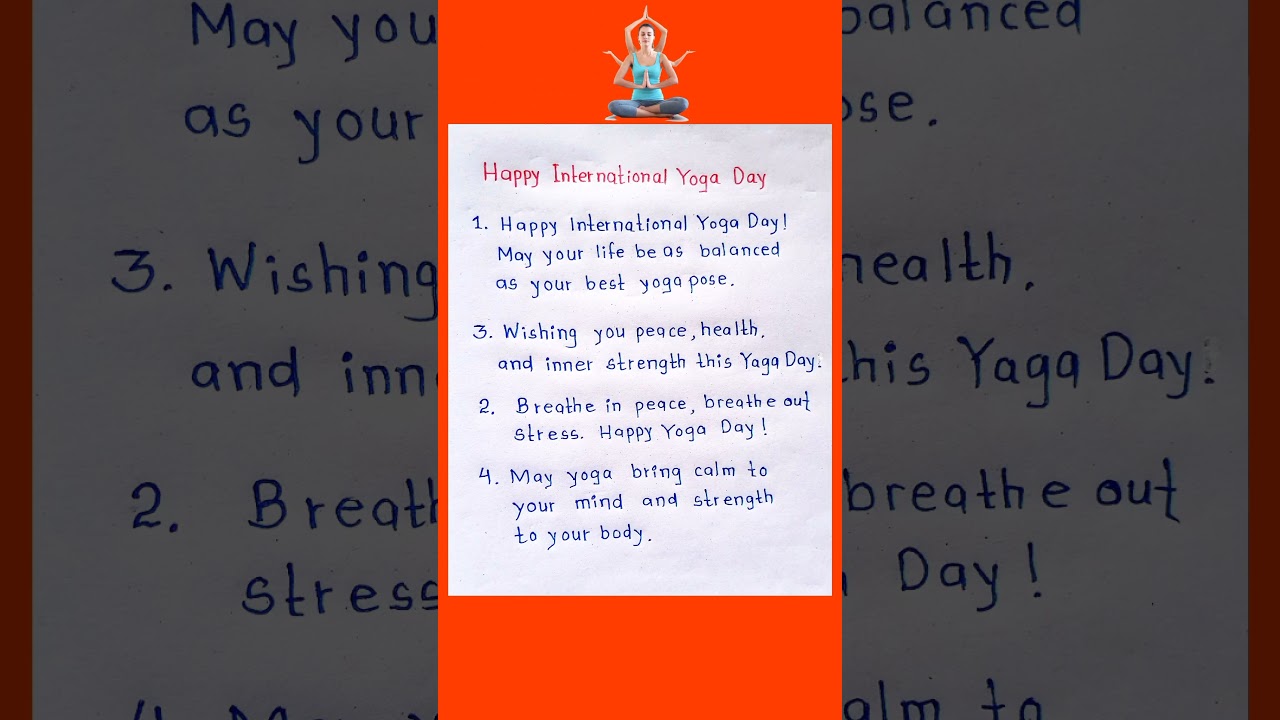 Happy International Yoga Day
1. Happy International Yoga Day!
May your life be as balanced
as your best yoga pose.
3. Wishing you peace, health,
and inner strength this Yaga Day.
2. Breathe in peace, breathe out
stress. Happy Yoga Day!
4. May yoga bring calm to
your mind and strength
to your body.